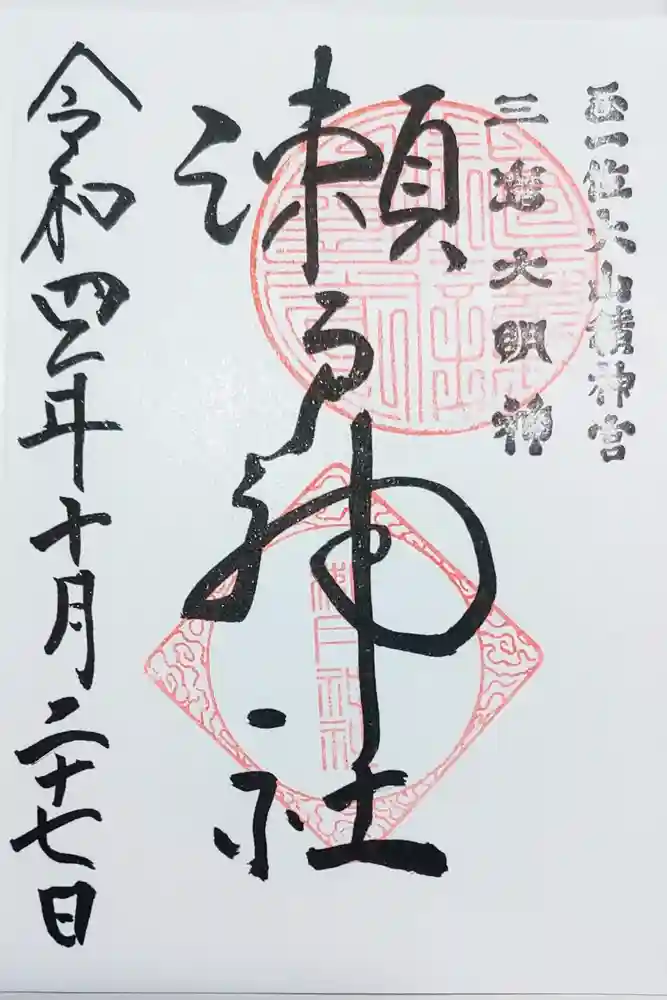 正一位大山積神宮
三嶌大明神
瀬戸神社
令和四年十月二十七日